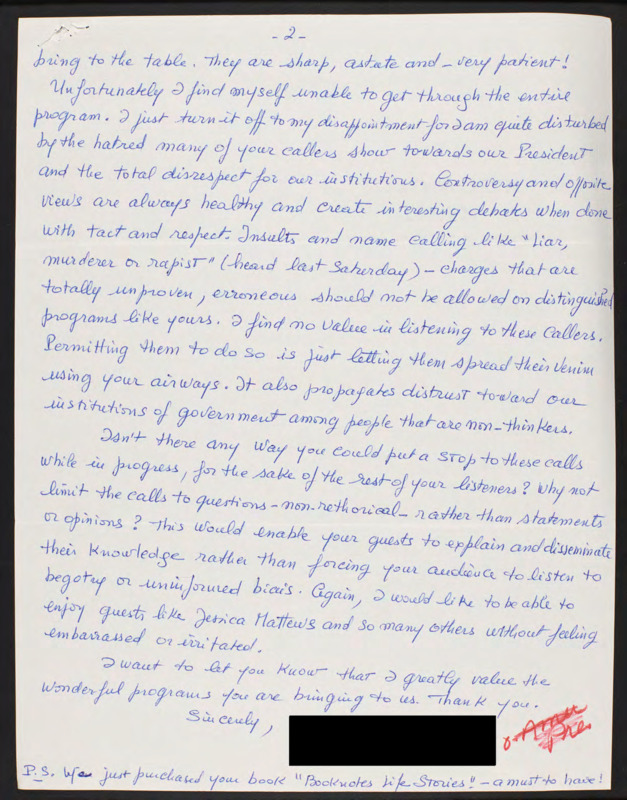 - 2 -
bring to the table. They are sharp, astute and - very patient!
Unfortunately I find myself unable to get through the entire
program. I just turn it off to my disappointment for I am quite disturbed
by the hatred many of your callers show towards our President
and the total disrespect for our institutions. Controversy and opposite
views are always healthy and create interesting debates when done
with tact and respect. Insults and name calling like "liar,
murderer or rapist" (heard last Saturday) - charges that are
totally unproven, erroneous should not be allowed on distinguished
programs like yours. I find no value in listening to these callers.
Permitting them to do so is just letting them spread their venim
using your airways. It also propagates distrust toward our
institutions of government among people that are non-thinkers.
Isn't there any way you could put a STOP to these calls
while in progress, for the sake of the rest of your listeners? Why not
limit the calls to questions - non-rethorical - rather than statements
or opinions? This would enable your guests to explain and disseminate
their knowledge rather than forcing your audience to listen to
begotry or uninformed biais. Again, I would like to be able to
enjoy guests like Jessica Mattews and so many others without feeling
embarrassed or irritated.
I want to let you know that I greatly value the
wonderful programs you are bringing to us. Thank you.
Sincerely,
P.S. We just purchased your book "Booknotes Life Stories"! - a must to have!